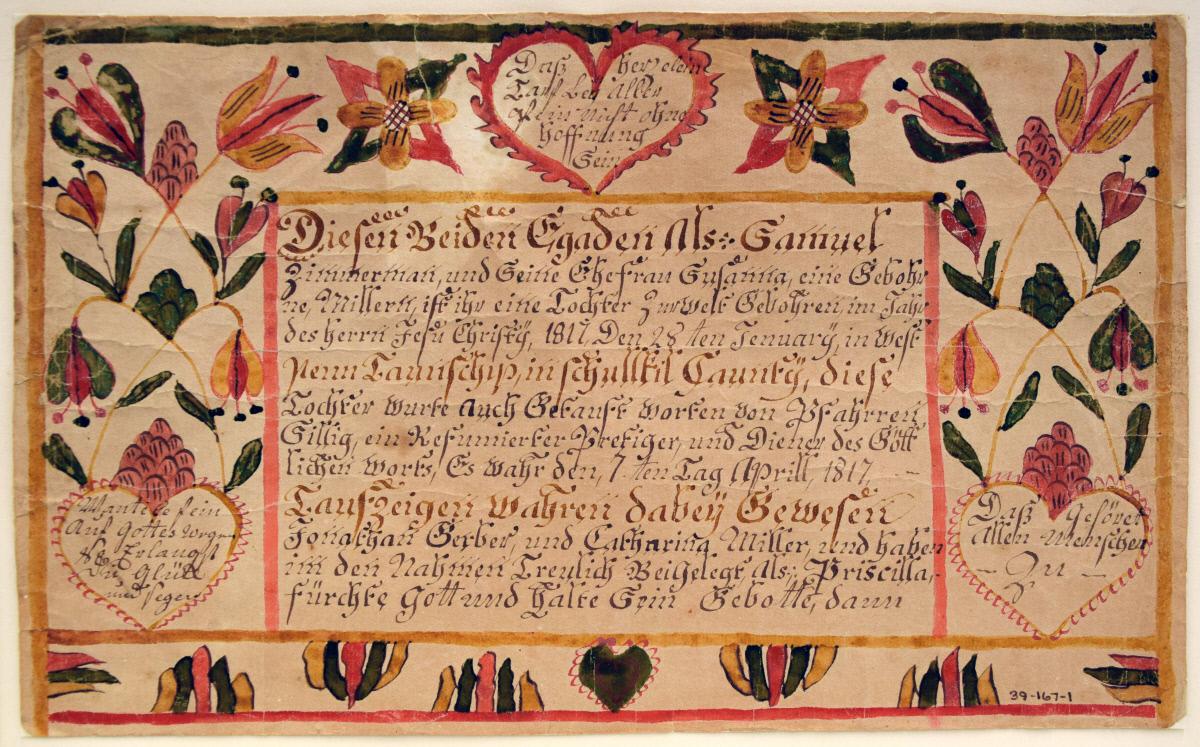 Daß her
bey allen
nicht ohne
hoffnung
Sein
Diesen Beiden Egaden Als: Samuel
Zimmerman, und Seine Ehefrau Susanna, eine Gebohr
ne, Millern, ist ihr eine Tochter Zur welt Gebohren, im Jahr
des Herrn Jesu Christy, 1817, Den 28ten Jenuary, in west
penn Taunschip, in schullkil Caunty, diese
Tochter wurte auch Getauft worten von Pfahrren
ein Refumierter Pretiger, und Diener des Gött
lichen worts, Es wahr den, 7ten Tag Aprill, 1817,
Taufzeigen wahren dabey Gewesen
Jonathan Gerber, und Catharina Miller, und haben
im den Nahmen Treulich Beigelegt Als; Priscilla,
fürchte Gott und halte Gebotte, dann
Auf Gottes
Erlangst
Glück
und Segen
Daß Gehöret
Allen Menschen
- Zu -
39-167-1